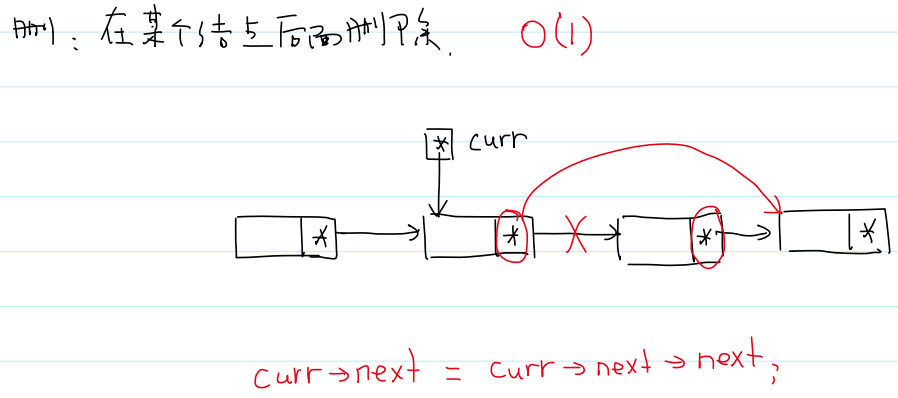 删: 在某个结点后面删除. O(1)
* curr
* * * *
curr→next = curr→next→next;